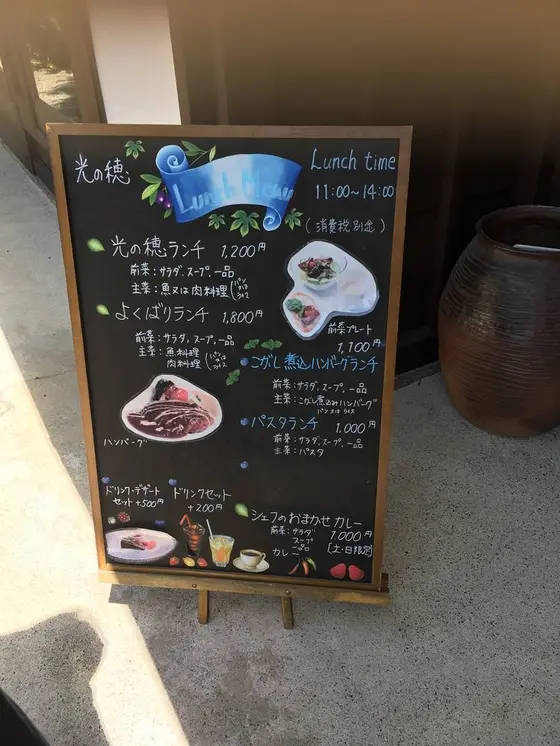 光の穂
Lunch Menu
Lunch time
11:00~14:00
(消費税別途)
光の穂ランチ 1,200円
前菜:サラダ、スープ、一品
主菜:魚又は肉料理(パン又はライス
よくばりランチ 1,800円
前菜:サラダ、スープ、一品
主菜:魚料理
肉料理(パン又はライス
ハンバーグ
前菜プレート
1,100円
こがし煮込ハンバーグランチ
前菜:サラダ、スープ、一品
主菜:こがし煮込みハンバーグ
パン又はライス
パスタランチ 1,000円
前菜:サラダ、スープ、一品
主菜:パスタ
ドリンク・デザート
セット+500円
ドリンクセット
+200円
シェフのおまかせカレー
1,000円
前菜:サラダ
スープ
一品
カレー
[土・日限定]